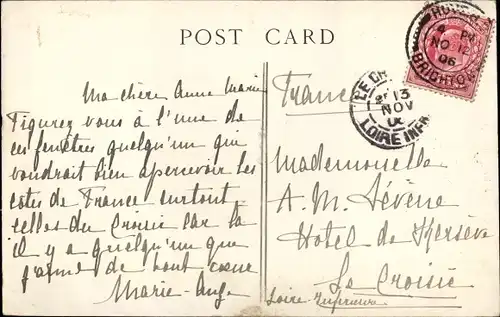 POST CARD
HOVE
8 PM
NO 12
06
BRIGHTON
LE CR
13
NOV
LOIRE INFRE
France
Ma chère Anne Marie
Figurez vous à l'une de
ces fenêtres quelqu'un qui
voudrait bien apercevoir les
côtes de France surtout
celles du Croisic car là
il y a quelqu'un que
j'aime de tout cœur
Marie-Ange
Mademoiselle
A. M. Lévène
Hotel de Kersevé
Le Croisic
Loire-Inférieure